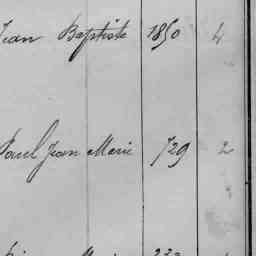 Jean Baptiste 1850 4
Paul Jean Marie 729 2